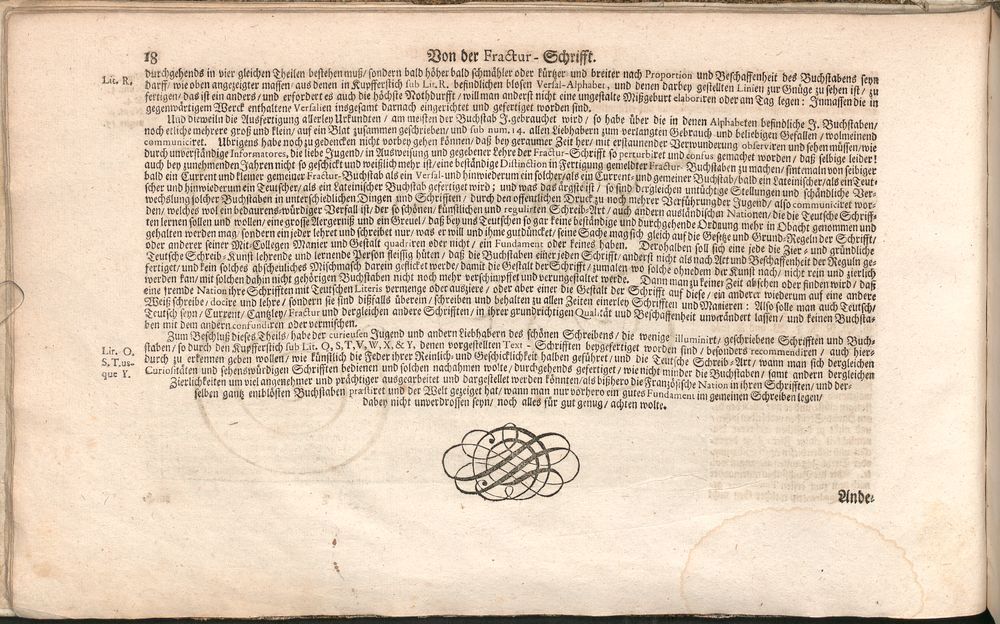 18
Von der Fractur-Schrifft.
Lit. R.
durchgehends in vier gleichen Theilen bestehen muß/ sondern bald höher bald schmähler oder kürtzer und breiter nach Proportion und Beschaffenheit des Buchstabens seyn
darff/ wie oben angezeigter massen/ aus denen in Kupfferstich sub Lit. R. befindlichen blosen Versal-Alphabet, und denen darbey gestellten Linien zur Gnüge zu sehen ist/ zu
fertigen/ das ist ein anders/ und erfordert es auch die höchste Nothdurfft/ will man anderst nicht eine ungestalte Mißgeburt elaboriren oder am Tag legen: Inmassen die in
gegenwärtigem Werck enthaltene Versalien insgesamt darnach eingerichtet und gefertiget worden sind.
Und dieweiln die Ausfertigung allerley Urkundten/ am meisten der Buchstab J. gebrauchet wird/ so habe über die in denen Alphabeten befindliche J. Buchstaben/
noch etliche mehrere groß und klein/ auf ein Blat zusammen geschrieben/ und sub num. 14. allen Liebhabern zum verlangten Gebrauch und beliebigen Gefallen/ wolmeinend
communiciret. Ubrigens habe noch zu gedencken nicht vorbey gehen können/ daß bey geraumer Zeit her/ mit erstaunender Verwunderung observiren und sehen müssen/ wie
durch unverständige Informatores, die liebe Jugend/ in Ausweisung und gegebener Lehre der Fractur-Schrifft so perturbiret und confus gemachet worden/ daß selbige leider!
auch bey zunehmenden Jahren nicht so geschickt und weißlich mehr ist/ eine beständige Distinction in Fertigung gemeldter Fractur-Buchstaben zu machen/ sintemaln von selbiger
bald ein Current und kleiner gemeiner Fractur-Buchstab als ein Versal- und hinwiederum ein solcher/ als ein Current- und gemeiner Buchstab/ bald ein Lateinischer/ als ein Teut-
scher und hinwiederum ein Teutscher/ als ein Lateinischer Buchstab gefertiget wird; und was das ärgste ist/ so sind dergleichen untüchtige Stellungen und schändliche Ver-
wechslung solcher Buchstaben in unterschiedlichen Dingen und Schrifften/ durch den offentlichen Druck zu noch mehrer Verführung der Jugend/ also communiciret wor-
den/ welches wol ein bedaurens-würdiger Verfall ist/ der so schönen/ künstlichen und regulirten Schreib-Art/ auch andern ausländischen Nationen/ die die Teutsche Schriff-
ten lernen sollen und wollen/ eine grosse Aergerniß und ein Greuel/ daß bey uns Teutschen so gar keine beständige und durchgehende Ordnung mehr in Obacht genommen und
gehalten worden mag/ sondern ein jeder lehret und schreibet nur/ was er will und ihme gutdüncket/ seine Sache mag sich gleich auf die Gesetz und Grund-Regeln der Schrifft/
oder anderer seiner Mit-Collegen Manier und Gestalt quadriren oder nicht/ ein Fundament oder keines haben. Derohalben soll sich eine jede die Zier- und gründliche
Teutsche Schreib-Kunst lehrende und lernende Person fleissig hüten/ daß die Buchstaben einer jeden Schrifft/ anderst nicht als nach Art und Beschaffenheit der Reguln ge-
fertiget/ und kein solches abscheuliches Mischmasch darein geflicket werde/ damit die Gestalt der Schrifft/ zumalen wo solche ohnedem der Kunst nach/ nicht rein und zierlich
werden kan/ mit solchen dahin nicht gehörigen Buchstaben nicht noch mehr verschimpffet und verungestaltet werde. Dann man zu keiner Zeit absehen oder finden wird/ daß
eine fremde Nation ihre Schrifften mit Teutschen Literis vermenge oder ausziere/ oder aber einer die Gestalt der Schrifft auf diese/ ein anderer wiederum auf eine andere
Weiß schreibe/ docire und lehre/ sondern sie sind dißfalls überein/ schreiben und behalten zu allen Zeiten einerley Schrifften und Manieren: Also solle man auch Teutsch/
Teutsch seyn/ Current/ Cantzley/ Fractur und dergleichen andere Schrifften/ in ihrer grundrichtigen Qualität und Beschaffenheit unverändert lassen/ und keinen Buchsta-
ben mit dem andern confundiren oder vermischen.
Lit. Q.
S. T. us-
que Y.
Zum Beschluß dieses Theils/ habe der curieusen Jugend und andern Liebhabern des schönen Schreibens/ die wenige illuminirt/ geschriebene Schrifften und Buch-
staben/ so durch den Kupfferstich sub Lit. Q, S, T, V, W, X, & Y, denen vorgestellten Text-Schrifften beygefertiget worden sind/ besonders recommendiren/ auch hier-
durch zu erkennen geben wollen/ wie künstlich die Feder ihrer Reinlich- und Geschicklichkeit halben geführet/ und die Teutsche Schreib-Art/ wann man sich dergleichen
Curiositäten und sehenswürdigen Schrifften bedienen und solchen nachahmen wolte/ durchgehends gefertiget/ wie nicht minder die Buchstaben/ samt andern dergleichen
Zierlichkeiten um viel angenehmer und prächtiger ausgearbeitet und dargestellet werden könnten/ als bißhero die Französische Nation in ihren Schrifften/ und der-
selben gantz entblösten Buchstaben præstiret und der Welt gezeiget hat/ wann man nur vorhero ein gutes Fundament im gemeinen Schreiben legen/
dabey nicht unverdrossen seyn/ noch alles für gut genug/ achten wolte.
Ande-